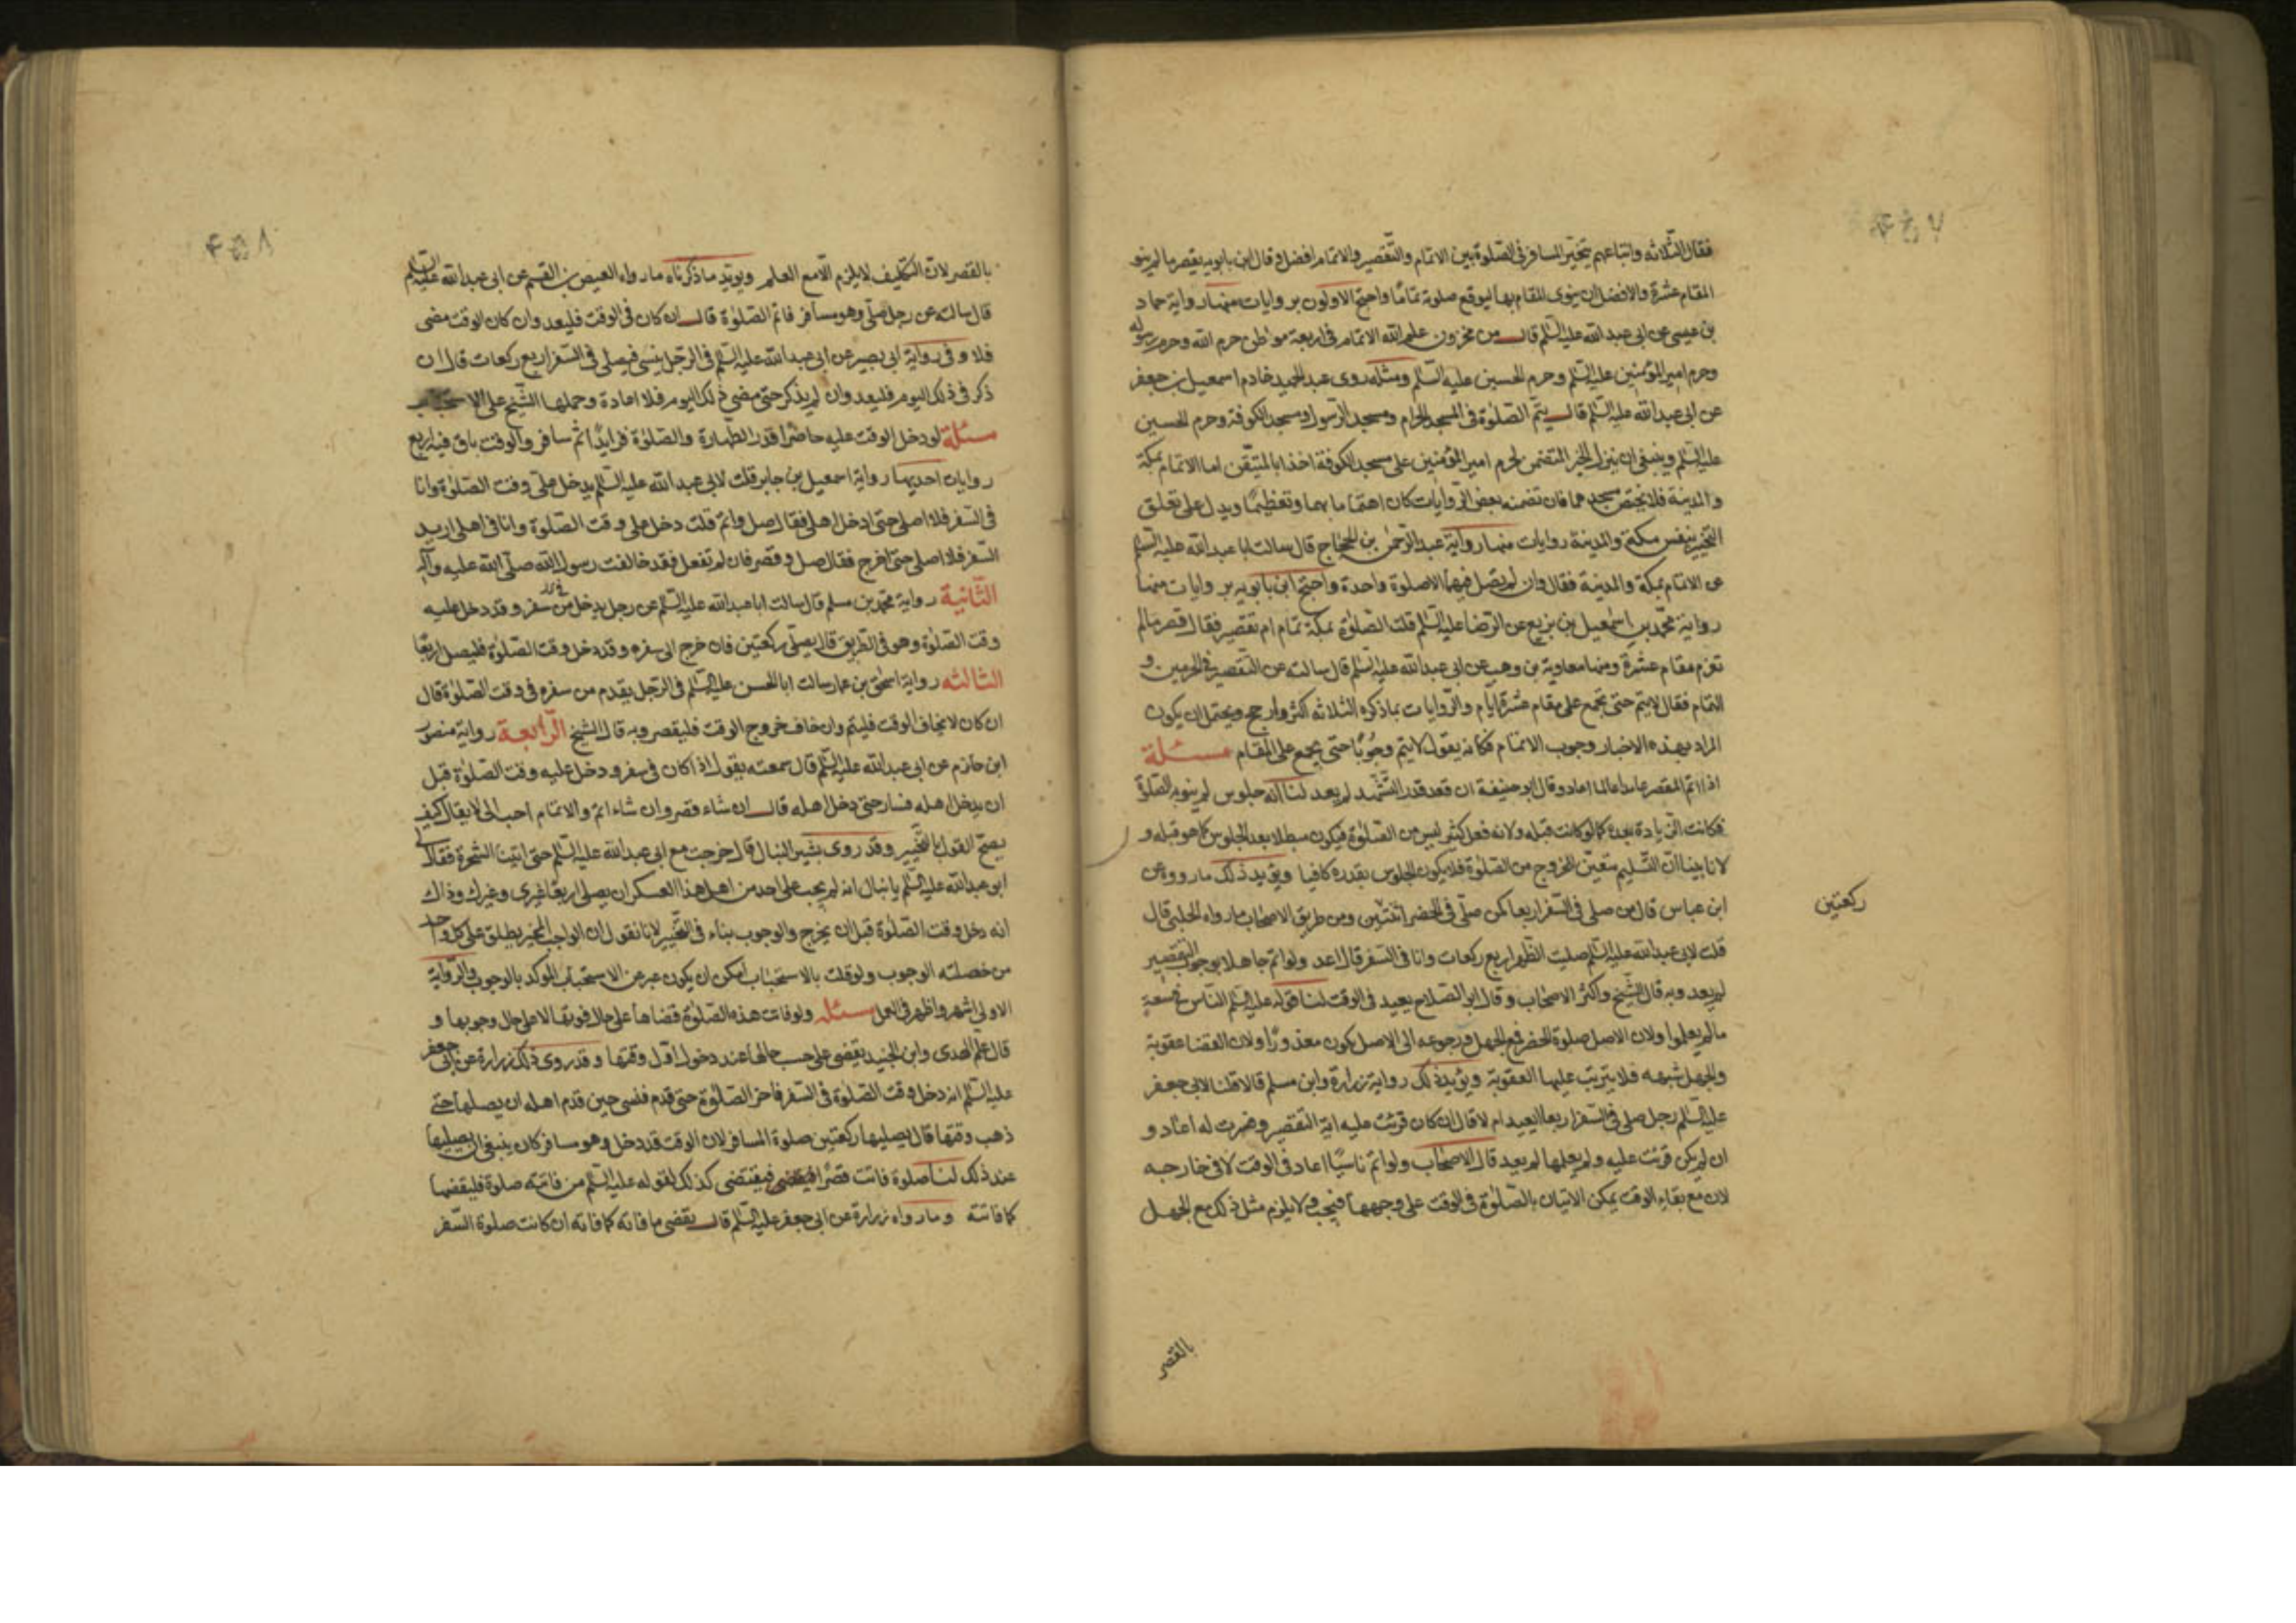 فقال الثلاثه واتباعهم يتخير المسافر فى الصلوة بين الاتمام والتقصير والاتمام افضل وقال ابن بابويه يقصر ما لم ينو
المقام عشرة والافضل ان ينوى المقام بها ليوقع صلوته تماما واحتج الاولون بروايات منها رواية حماد
بن عيسى عن ابى عبد الله عليه السلم قال من مخزون علم الله الاتمام فى اربعة مواطن حرم الله وحرم رسوله
وحرم امير المؤمنين عليه السلم وحرم الحسين عليه السلم ومثله روى عبد الحميد خادم اسمعيل بن جعفر
عن ابى عبد الله عليه السلم قال يتم الصلوة فى المسجد الحرام ومسجد الرسول ومسجد الكوفة وحرم الحسين
عليه السلم وينبغى ان ينزل الخبر المتضمن لحرم امير المؤمنين على مسجد الكوفة اخذا بالمتيقن اما الاتمام بمكة
والمدينة فلا يختص مسجدهما فان تضمنه بعض الروايات كان اهتماما بهما وتعظيما ويدل على تعلق
التخيير بنفس مكة والمدينة روايات منها رواية عبد الرحمن بن الحجاج قال سالت ابا عبد الله عليه السلم
عن الاتمام بمكة والمدينة فقال وان لم يصل فيهما الا صلوة واحدة واحتج ابن بابويه بروايات منها
رواية محمد بن اسمعيل بن بزيع عن الرضا عليه السلم قلت الصلوة بمكة تمام ام تقصير فقال قصر ما لم
تعزم مقام عشرة ومنها معاوية بن وهب عن ابى عبد الله عليه السلم قال سالته عن التقصير فى الحرمين و
التمام فقال لا يتم حتى يجمع على مقام عشرة ايام والروايات بما ذكره الثلاثه اكثر وارجح ويحتمل ان يكون
المراد بهذه الاخبار وجوب الاتمام فكانه يقول لا يتم وجوبا حتى يجمع على المقام مسئلة
اذا اتم المقصر عامدا عالما اعاد وقال ابو حنيفة ان قعد قدر التشهد لم يعد لنا انه جلوس لم ينو به الصلوة
فكانت الزيادة بعده كما لو كانت قبله ولانه فعل كثير ليس من الصلوة فيكون مبطلا بعد الجلوس كما هو قبله و
لانا بينا ان التسليم متعين للخروج من الصلوة فلا يكون الجلوس بقدره كافيا ويؤيد ذلك ما رووه عن
ابن عباس قال من صلى فى السفر اربعا كمن صلى فى الحضر اثنتين ومن طريق الاصحاب ما رواه الحلبى قال
ركعتين
قلت لابى عبد الله عليه السلم صليت الظهر اربع ركعات وانا فى السفر قال اعد ولو اتم جاهلا بوجوب التقصير
لم يعد وبه قال الشيخ واكثر الاصحاب وقال ابو الصلاح يعيد فى الوقت لنا قوله عليه السلم الناس فى سعة
ما لم يعلموا ولان الاصل صلوة الحضر فمع الجهل ورجوعه الى الاصل يكون معذورا ولان القضا عقوبة
والجهل شبهه فلا يترتب عليها العقوبة ويؤيد ذلك رواية زرارة وابن مسلم قالا قلنا لابى جعفر
عليه السلم رجل صلى فى السفر اربعا ايعيد ام لا قال ان كان قرئت عليه اية التقصير وفسرت له اعاد و
ان لم يكن قرئت عليه ولم يعلمها لم يعد قال الاصحاب ولو اتم ناسيا اعاد فى الوقت لا فى خارجه
لان مع بقاء الوقت يمكن الاتيان بالصلوة فى الوقت على وجهها فيجب ولا يلزم مثل ذلك مع الجهل
بالقصر
بالقصر لان التكليف لا يلزم الا مع العلم ويويد ما ذكرناه ما رواه العيص بن القسم عن ابى عبد الله عليه السلم
قال سالته عن رجل صلى وهو مسافر فاتم الصلوة قال ان كان فى الوقت فليعد وان كان الوقت مضى
فلا وفى رواية ابى بصير عن ابى عبد الله عليه السلم فى الرجل ينسى فيصلى فى السفر اربع ركعات قال ان
ذكر فى ذلك اليوم فليعد وان لم يذكر حتى مضى ذلك اليوم فلا اعادة وحملها الشيخ على الاستحباب
مسئلة لو دخل الوقت عليه حاضرا قدر الطهارة والصلوة فزايدا ثم سافر والوقت باق فيه اربع
روايات احديها رواية اسمعيل بن جابر قلت لابى عبد الله عليه السلم يدخل على وقت الصلوة وانا
فى السفر فلا اصلى حتى ادخل اهلى فقال صل واتم قلت دخل على وقت الصلوة وانا فى اهلى اريد
السفر فلا اصلى حتى اخرج فقال صل وقصر فان لم تفعل فقد خالفت رسول الله صلى الله عليه وآله
الثانية رواية محمد بن مسلم قال سالت ابا عبد الله عليه السلم عن رجل يدخل من سفره وقد دخل عليه
وقت الصلوة وهو فى الطريق قال يصلى ركعتين فان خرج الى سفره وقد دخل وقت الصلوة فليصل اربعا
الثالثه رواية اسحق بن عمار سالت ابا الحسن عليه السلم فى الرجل يقدم من سفره فى وقت الصلوة قال
ان كان لا يخاف الوقت فليتم وان خاف خروج الوقت فليقصر وبه قال الشيخ الرابعة رواية منصور
ابن حازم عن ابى عبد الله عليه السلم قال سمعته يقول اذا كان فى سفر ودخل عليه وقت الصلوة قبل
ان يدخل اهله فسار حتى دخل اهله قال ان شاء قصر وان شاء اتم والاتمام احب الى لا يقال كيف
يصح القول بالتخيير وقد روى بشير النبال قال خرجت مع ابى عبد الله عليه السلم حتى اتينا الشجرة فقال لى
ابو عبد الله عليه السلم يا نبال انه لم يجب على احد من اهل هذا العسكر ان يصلى اربعا غيرى وغيرك وذاك
انه دخل وقت الصلوة قبل ان يخرج والوجوب بناء فى التخيير لانا نقول ان الواجب المخير يطلق على كل واحد
من خصلته الوجوب ولو قلت بالاستحباب امكن ان يكون عبر عن الاستحباب الموكد بالوجوب والرواية
الاولى اشهر واظهر فى العمل مسئله ولو فاتت هذه الصلوة قضاها على حال فوتها لا على حال وجوبها و
قال علم الهدى وابن الجنيد يقضى على حسب حالها عند دخول اول وقتها وقد روى ذلك زرارة عن ابى جعفر
عليه السلم انه دخل وقت الصلوة فى السفر فاخر الصلوة حتى قدم فنسى حين قدم اهله ان يصليها حتى
ذهب وقتها قال يصليها ركعتين صلوة المسافر لان الوقت قد دخل وهو مسافر كان ينبغى ان يصليها
عند ذلك لنا صلوة فاتت قصرا فيقتضى كذلك لقوله عليه السلم من فاتته صلوة فليقضها
كما فاتته وما رواه زرارة عن ابى جعفر عليه السلم قال يقضى ما فاته كما فاته ان كانت صلوة السفر